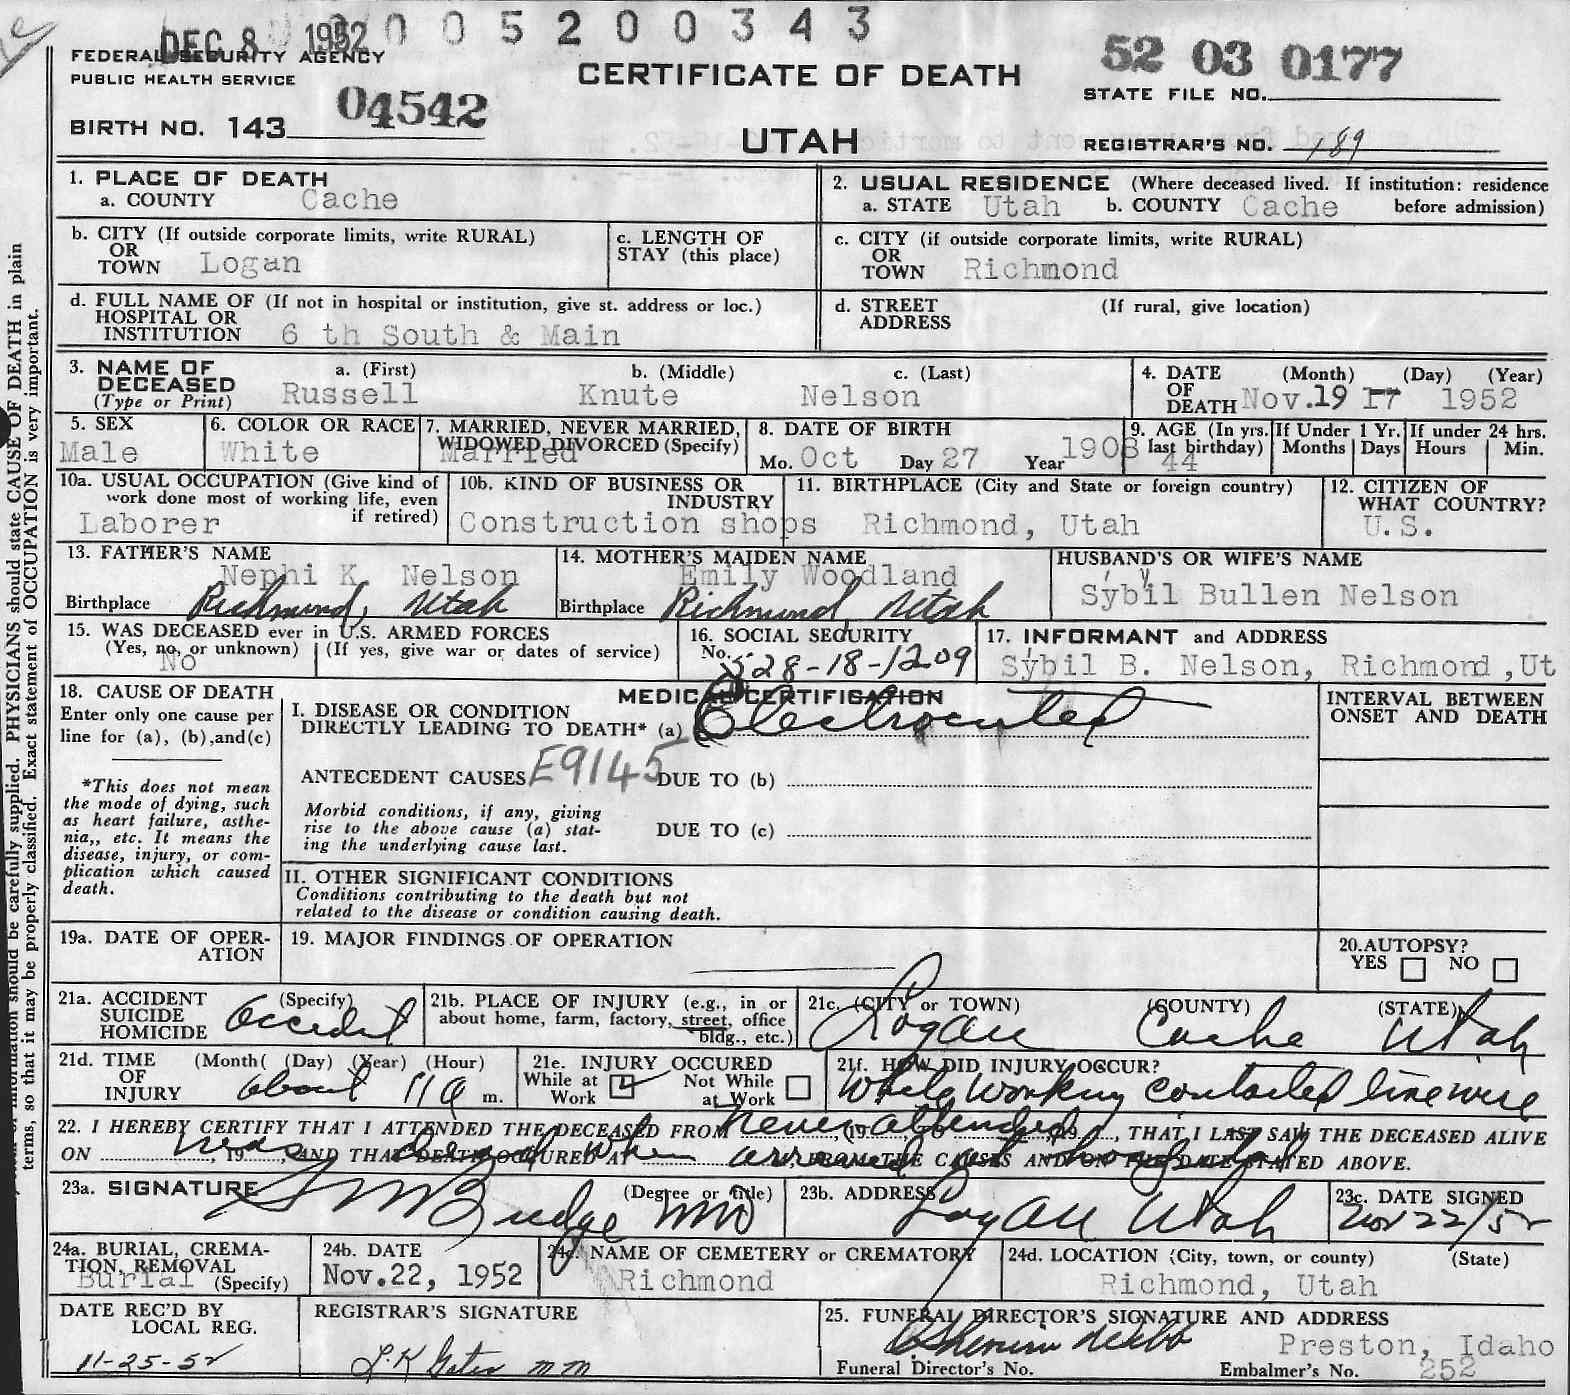 DEC 8 1952 0 0 5 2 0 0 3 4 3
FEDERAL SECURITY AGENCY
PUBLIC HEALTH SERVICE
CERTIFICATE OF DEATH
52 03 0177
STATE FILE NO.
BIRTH NO. 143 04542
UTAH
REGISTRAR'S NO. 189
1. PLACE OF DEATH
a. COUNTY Cache
2. USUAL RESIDENCE (Where deceased lived. If institution: residence
a. STATE Utah b. COUNTY Cache before admission)
b. CITY (If outside corporate limits, write RURAL)
OR
TOWN Logan
c. LENGTH OF
STAY (this place)
c. CITY (if outside corporate limits, write RURAL)
OR
TOWN Richmond
d. FULL NAME OF (If not in hospital or institution, give st. address or loc.)
HOSPITAL OR
INSTITUTION 6 th South & Main
d. STREET (If rural, give location)
ADDRESS
3. NAME OF a. (First) b. (Middle) c. (Last)
DECEASED
(Type or Print) Russell Knute Nelson
4. DATE (Month) (Day) (Year)
OF
DEATH Nov. 19 17 1952
5. SEX
Male
6. COLOR OR RACE
White
7. MARRIED, NEVER MARRIED,
WIDOWED, DIVORCED (Specify)
Married
8. DATE OF BIRTH
Mo. Oct Day 27 Year 1908
9. AGE (In yrs.
last birthday)
44
If Under 1 Yr.
Months Days
If under 24 hrs.
Hours Min.
10a. USUAL OCCUPATION (Give kind of
work done most of working life, even
if retired)
Laborer
10b. KIND OF BUSINESS OR
INDUSTRY
Construction shops
11. BIRTHPLACE (City and State or foreign country)
Richmond, Utah
12. CITIZEN OF
WHAT COUNTRY?
U.S.
13. FATHER'S NAME
Nephi K Nelson
Birthplace Richmond, Utah
14. MOTHER'S MAIDEN NAME
Emily Woodland
Birthplace Richmond, Utah
HUSBAND'S OR WIFE'S NAME
Sybil Bullen Nelson
15. WAS DECEASED ever in U.S. ARMED FORCES
(Yes, no, or unknown) (If yes, give war or dates of service)
No
16. SOCIAL SECURITY
No. 528-18-1209
17. INFORMANT and ADDRESS
Sybil B. Nelson, Richmond ,Ut
18. CAUSE OF DEATH
Enter only one cause per
line for (a), (b),and(c)
*This does not mean
the mode of dying, such
as heart failure, asthe-
nia,, etc. It means the
disease, injury, or com-
plication which caused
death.
MEDICAL CERTIFICATION
I. DISEASE OR CONDITION
DIRECTLY LEADING TO DEATH* (a) Electrocuted
ANTECEDENT CAUSES E9145 DUE TO (b)
Morbid conditions, if any, giving
rise to the above cause (a) stat-
ing the underlying cause last.
DUE TO (c)
II. OTHER SIGNIFICANT CONDITIONS
Conditions contributing to the death but not
related to the disease or condition causing death.
INTERVAL BETWEEN
ONSET AND DEATH
19a. DATE OF OPER-
ATION
19. MAJOR FINDINGS OF OPERATION
20. AUTOPSY?
YES NO
21a. ACCIDENT (Specify)
SUICIDE
HOMICIDE Accident
21b. PLACE OF INJURY (e.g., in or
about home, farm, factory, street, office
bldg., etc.)
21c. (CITY or TOWN) (COUNTY) (STATE)
Logan Cache Utah
21d. TIME (Month( (Day) (Year) (Hour)
OF
INJURY about 11 a m.
21e. INJURY OCCURED
While at Work
Not While at Work
21f. HOW DID INJURY OCCUR?
While working contacted line wire
22. I HEREBY CERTIFY THAT I ATTENDED THE DECEASED FROM never attended, 19, TO, 19, THAT I LAST SAW THE DECEASED ALIVE
ON, 19, AND THAT DEATH OCCURED AT, FROM THE CAUSES AND ON THE DATE STATED ABOVE.
was dead when arrived at hospital
23a. SIGNATURE (Degree or title)
S M Budge MD
23b. ADDRESS
Logan Utah
23c. DATE SIGNED
Nov 22/52
24a. BURIAL, CREMA-
TION, REMOVAL
Burial (Specify)
24b. DATE
Nov.22, 1952
24c. NAME OF CEMETERY or CREMATORY
Richmond
24d. LOCATION (City, town, or county) (State)
Richmond, Utah
DATE REC'D BY
LOCAL REG.
11-25-52
REGISTRAR'S SIGNATURE
25. FUNERAL DIRECTOR'S SIGNATURE AND ADDRESS
Webb Preston, Idaho
Funeral Director's No. Embalmer's No. 252
information should be carefully supplied. PHYSICIANS should state CAUSE OF DEATH in plain
terms, so that it may be properly classified. Exact statement of OCCUPATION is very important.